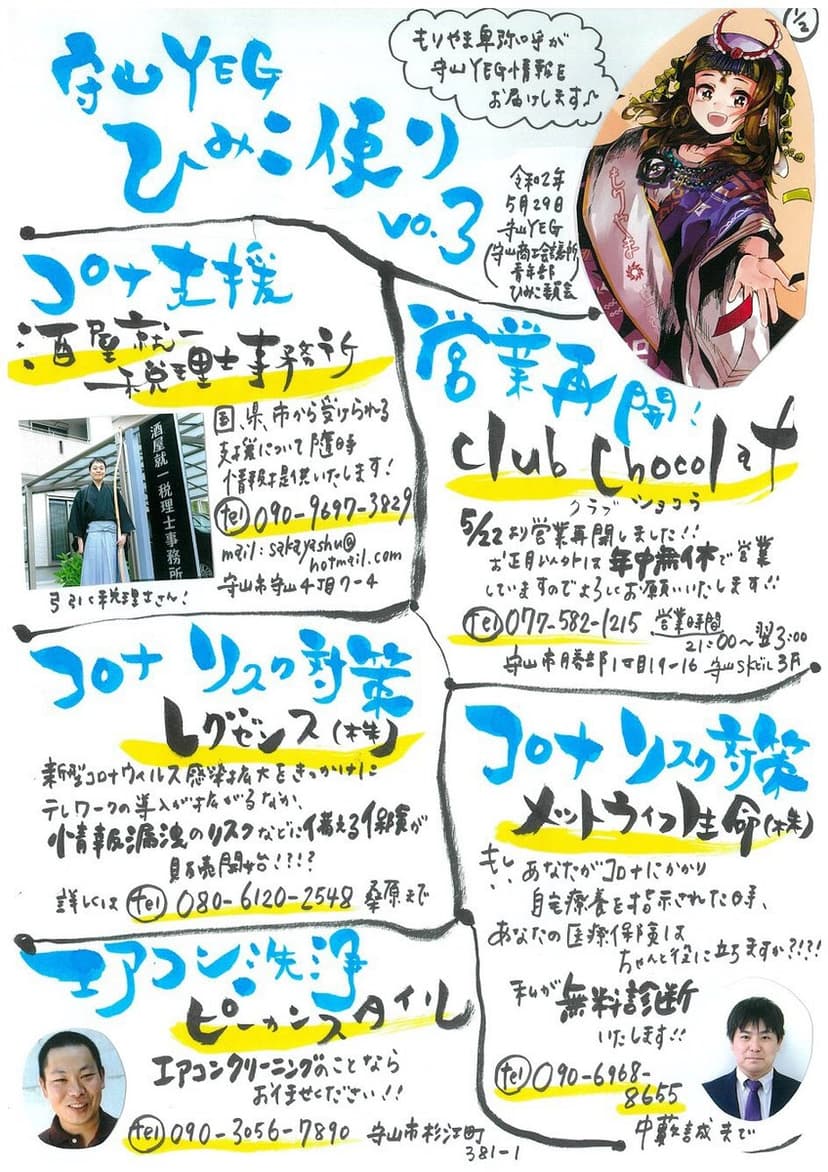 1/2
もりやま卑弥呼が
守山YEG情報を
お届けします♪
守山YEG
ひみこ便り
vo.3
令和2年
5月29日
守山YEG
(守山商工会議所
青年部
ひみこ委員会
もりやま
コロナ支援
酒屋就一
税理士事務所
酒屋就一税理士事務所
国、県、市から受けられる
支援について随時
情報提供いたします!
tel 090-9697-3829
mail:sakayashu@
hotmail.com
守山市守山4丁目7-4
弓引く税理士さん!
営業再開!
club Chocolat
クラブ ショコラ
5/22より営業再開しました!!
お正月以外は年中無休で営業
していますのでよろしくお願いいたします!!
tel 077-582-1215 営業時間
21:00〜翌3:00
守山市勝部1丁目19-16 守山SKビル3F
コロナ リスク対策
レグゼンス(株)
新型コロナウィルス感染拡大をきっかけに
テレワークの導入が拡がるなか、
情報漏洩のリスクなどに備える保険が
販売開始!?!?
詳しくは tel 080-6120-2548 桑原まで
コロナ リスク対策
メットライフ生命(株)
もし、あなたがコロナにかかり
自宅療養を指示された時、
あなたの医療保険は
ちゃんと役に立ちますか?!?!
私が無料診断
いたします!!
tel 090-6968-
8655
中藪誠まで
エアコン洗浄
ピーカンスタイル
エアコンクリーニングのことなら
お任せください!!
tel 090-3056-7890 守山市杉江町
381-1